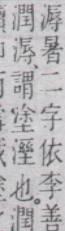 溽暑二字依李善
潤溽、謂塗溼也。潤